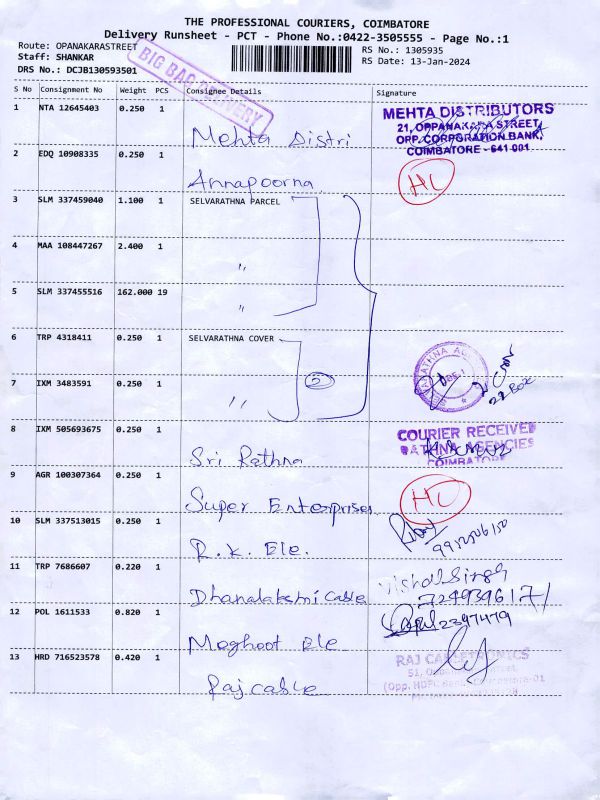 THE PROFESSIONAL COURIERS, COIMBATORE
Delivery Runsheet - PCT - Phone No.:0422-3505555 - Page No.:1
Route: OPANAKARASTREET
RS No.: 1305935
Staff: SHANKAR
RS Date: 13-Jan-2024
DRS No.: DCJB130593501
BIG BAG DELIVERY
S No Consignment No Weight PCS Consignee Details Signature
1 NTA 12645403 0.250 1 Mehta Distri
MEHTA DISTRIBUTORS
21, OPPANAKARA STREET,
OPP. CORPORATION BANK,
COIMBATORE - 641 001.
2 EDQ 10908335 0.250 1 Annapoorna HL
3 SLM 337459040 1.100 1 SELVARATHNA PARCEL
4 MAA 108447267 2.400 1 "
5 SLM 337455516 162.000 19 "
6 TRP 4318411 0.250 1 SELVARATHNA COVER
7 IXM 3483591 0.250 1 " 2
21 Box
8 IXM 505693675 0.250 1 Sri Rathna
COURIER RECEIVED
RATHNA AGENCIES
COIMBATORE
9 AGR 100307364 0.250 1 Super Enterprises HL
10 SLM 337513015 0.250 1 R.K. Ele.
11 TRP 7686607 0.220 1 Dhanalakshmi Cable
Vishal Singh
12 POL 1611533 0.820 1 Meghoot Ele
13 HRD 716523578 0.420 1 Raj cable
RAJ CABLETRONICS